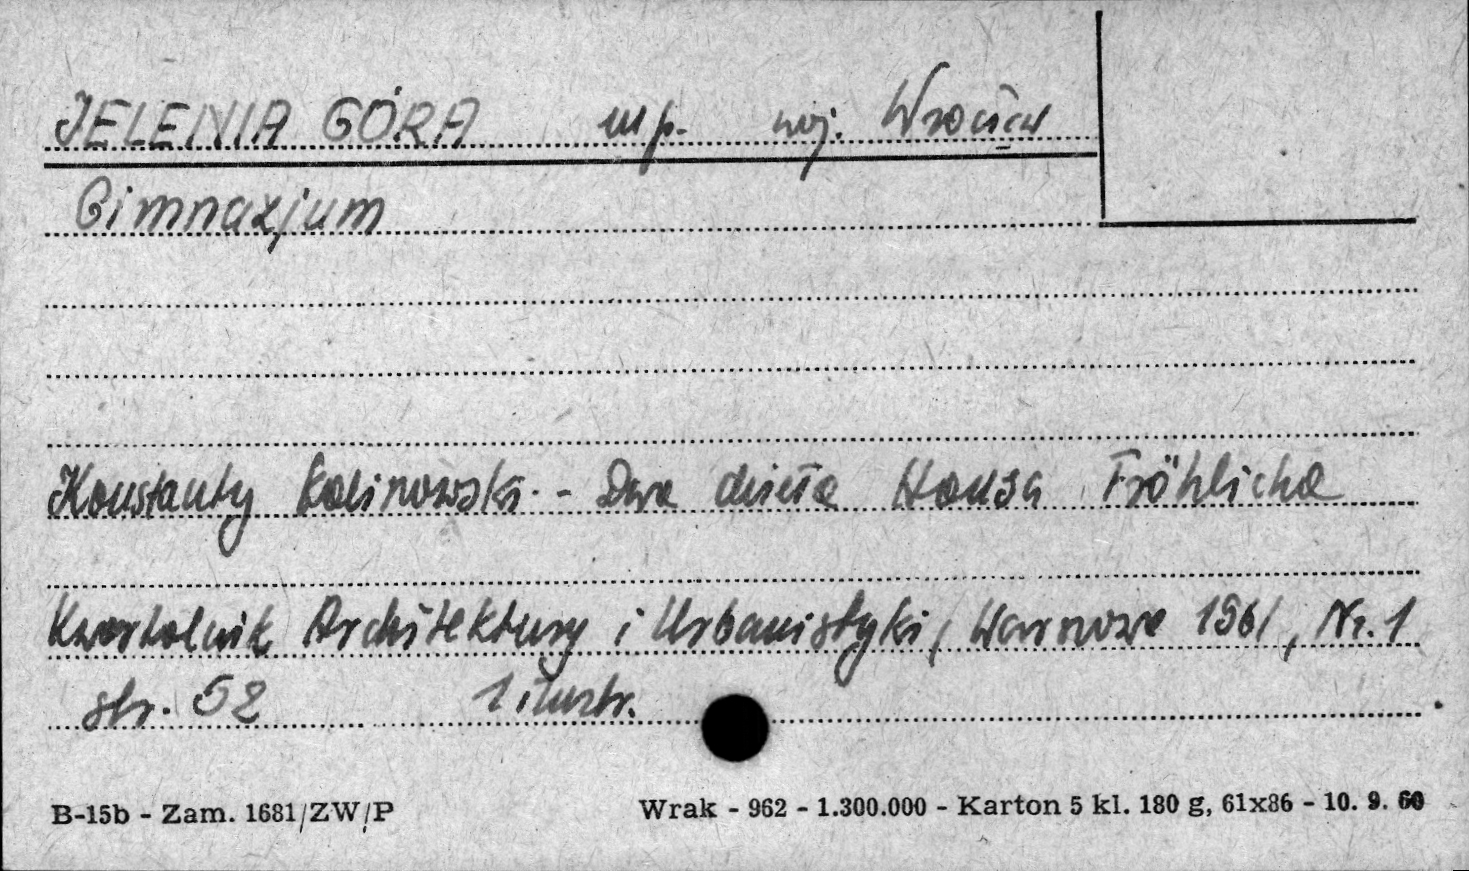 JELENIA GÓRA mp. woj. Wrocław
Gimnazjum
Konstanty Kalinowski - Dwa dzieła Hansa Fröhlicha
Kwartalnik Architektury i Urbanistyki, Warszawa 1961, Nr. 1
str. 52 1 ilustr.
B-15b - Zam. 1681/ZW/P Wrak - 962 - 1.300.000 - Karton 5 kl. 180 g, 61x86 - 10. 9. 60